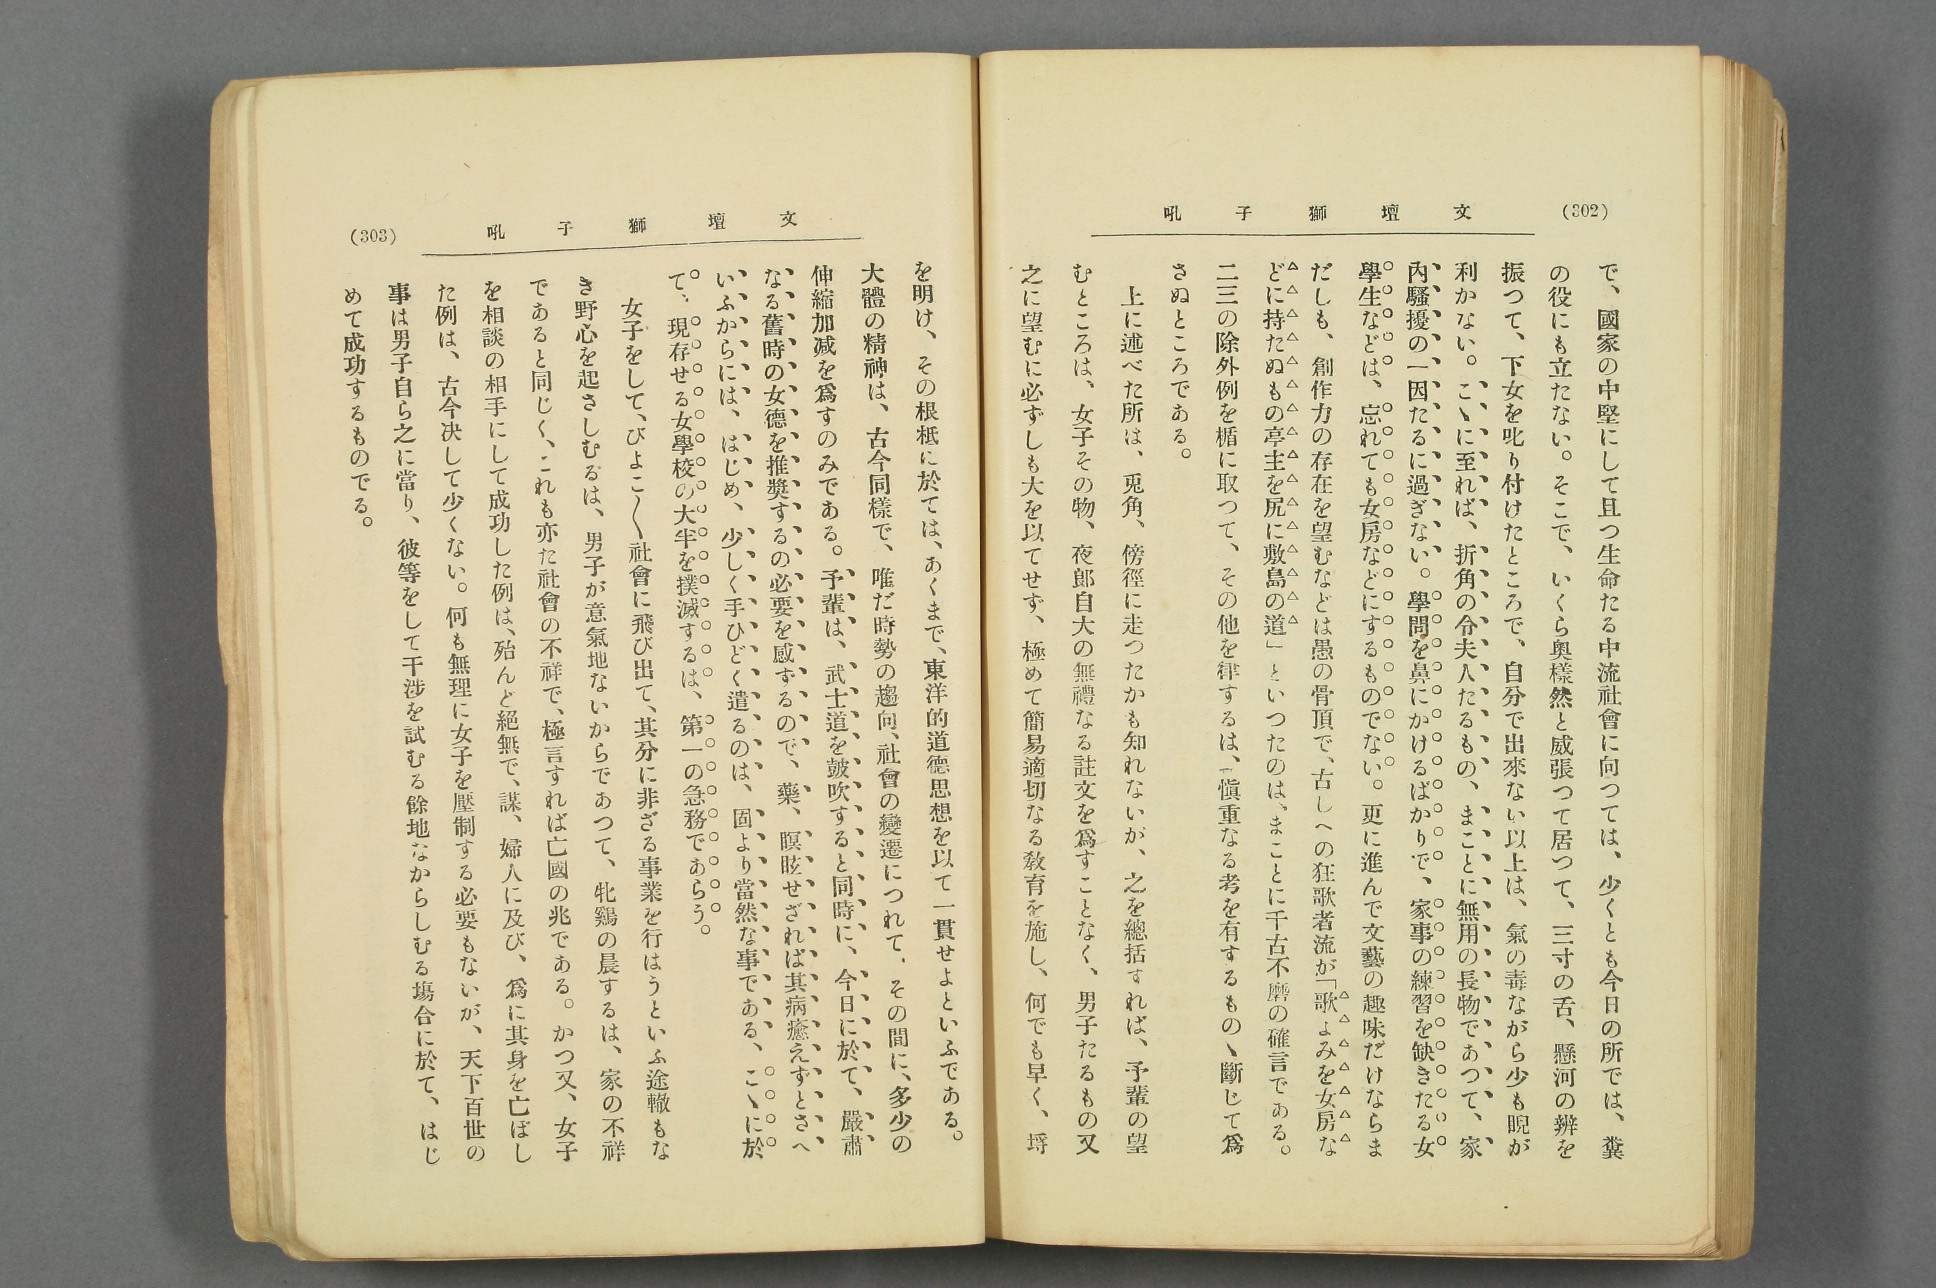 (302)
文壇獅子吼
で、國家の中堅にして且つ生命たる中流社會に向つては、少くとも今日の所では、糞
の役にも立たない。そこで、いくら奥樣然と威張つて居つて、三寸の舌、懸河の辨を
振つて、下女を叱り付けたところで、自分で出來ない以上は、氣の毒ながら少も睨が
利かない。こゝに至れば、折角の令夫人たるもの、まことに無用の長物であつて、家
內騷擾の一因たるに過ぎない。學問を鼻にかけるばかりで、家事の練習を缺きたる女
學生などは、忘れても女房などにするものでない。更に進んで文藝の趣味だけならま
だしも、創作力の存在を望むなどは愚の骨頂で、古しへの狂歌者流が「歌よみを女房な
どに持たぬもの亭主を尻に敷島の道」といつたのは、まことに千古不磨の確言である。
二三の除外例を楯に取つて、その他を律するは、愼重なる考を有するものゝ斷じて爲
さぬところである。
上に述べた所は、兎角、傍徑に走つたかも知れないが、之を總括すれば、予輩の望
むところは、女子その物、夜郎自大の無禮なる註文を爲すことなく、男子たるもの又
之に望むに必ずしも大を以てせず、極めて簡易適切なる敎育を施し、何でも早く、埒
文壇獅子吼
(303)
を明け、その根柢に於ては、あくまで、東洋的道德思想を以て一貫せよといふである。
大體の精神は、古今同樣で、唯だ時勢の趨向、社會の變遷につれて、その間に、多少の
伸縮加减を爲すのみである。予輩は、武士道を鼓吹すると同時に、今日に於て、嚴肅
なる舊時の女德を推奬するの必要を感ずるので、藥、瞑眩せざれば其病癒えずとさへ
いふからには、はじめ、少しく手ひどく遣るのは、固より當然な事である、こゝに於
て、現存せる女學校の大半を撲滅するは、第一の急務であらう。
女子をして、ぴよこ〱社會に飛び出て、其分に非ざる事業を行はうといふ途轍もな
き野心を起さしむるは、男子が意氣地ないからであつて、牝鷄の晨するは、家の不祥
であると同じく、これも亦た社會の不祥で、極言すれば亡國の兆である。かつ又、女子
を相談の相手にして成功した例は、殆んど絕無で、謀、婦人に及び、爲に其身を亡ぼし
た例は、古今決して少くない。何も無理に女子を壓制する必要もないが、天下百世の
事は男子自ら之に當り、彼等をして干渉を試むる餘地なからしむる塲合に於て、はじ
めて成功するものでる。